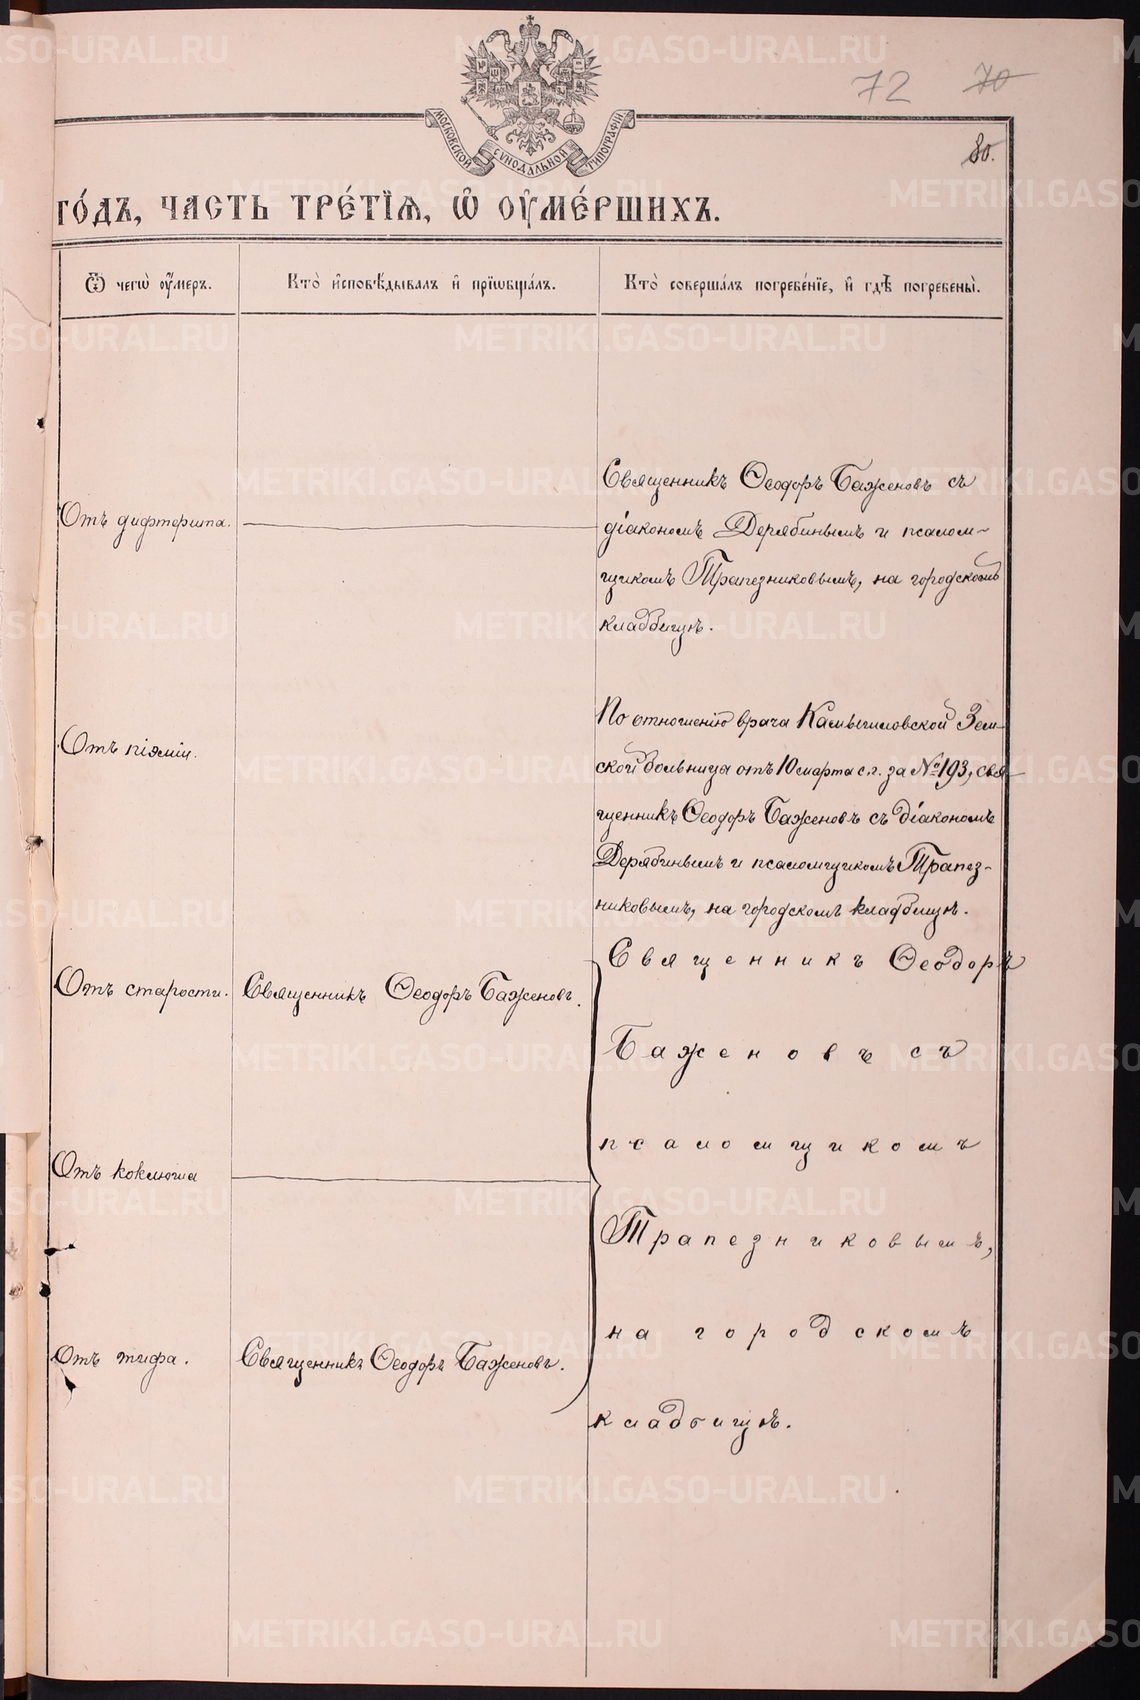 72 70
МОСКОВСКОЙ СѴНОДАЛЬНОЙ ТИПОГРАФІИ
80.
ГО́ДЪ, ЧАСТЬ ТРЕ́ТЇѦ, Ѡ҆ ОУ҆МЕ́РШИХЪ.
Ѿ чегѡ̀ оу҆́меръ.
Кто̀ и҆сповѣ́дывалъ и҆ прїѡбща́лъ.
Кто̀ соверша́лъ погребе́нїе, и҆ гдѣ̀ погребены̀.
Отъ дифтерита.
Священникъ Ѳеодоръ Баженовъ съ
діакономъ Дерябинымъ и псалом-
щикомъ Трапезниковымъ, на городскомъ
кладбищѣ.
Отъ піэміи.
По отношенію врача Камышловской Зем-
ской больницы отъ 10 марта с.г. за № 193, свя-
щенникъ Ѳеодоръ Баженовъ съ діакономъ
Дерябинымъ и псаломщикомъ Трапез-
никовымъ, на городскомъ кладбищѣ.
Отъ старости.
Священникъ Ѳеодоръ Баженовъ.
Священникъ Ѳеодоръ
Баженовъ съ
псаломщикомъ
Трапезниковымъ,
на городскомъ
кладбищѣ.
Отъ коклюша
Отъ тифа.
Священникъ Ѳеодоръ Баженовъ.
METRIKI.GASO-URAL.RU